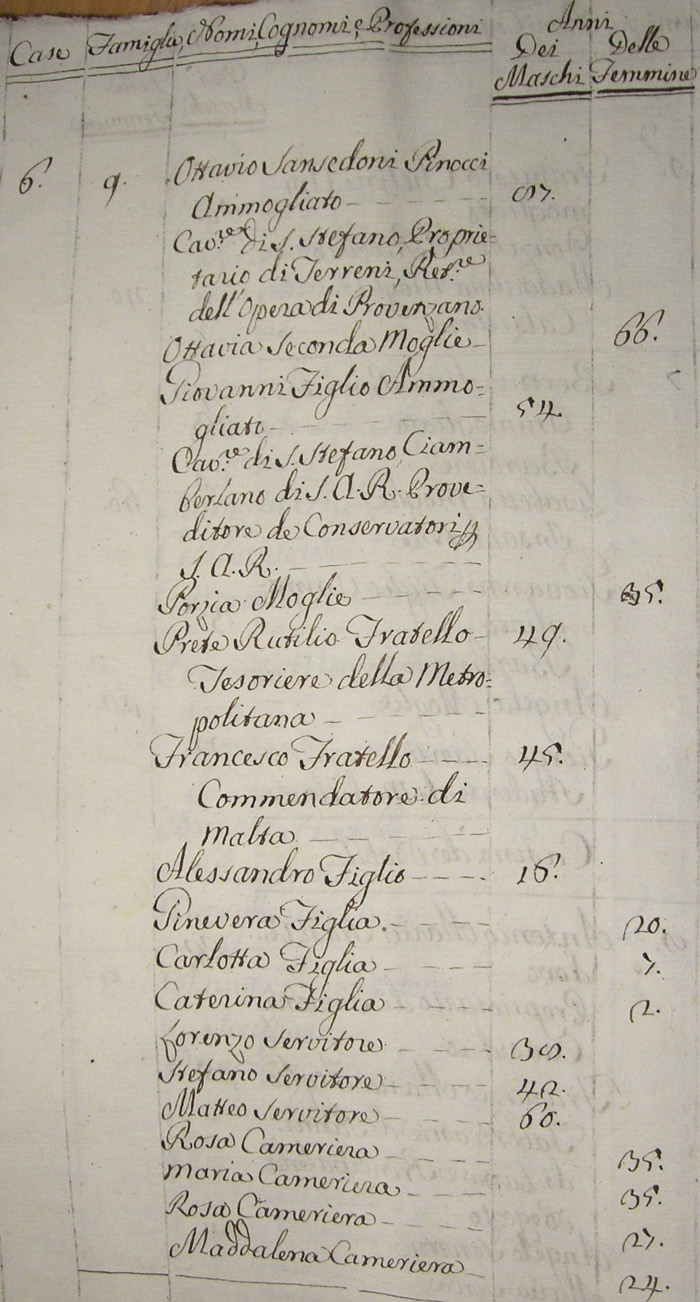 Case Famiglie Nomi, Cognomi, e, Professioni Anni
Dei Maschi Delle Femmine
6. 9. Ottavio Sansedoni Pinocci
Ammogliato 87.
Cav.re di S. Stefano, Proprie=
tario di Terreni, Ret.re
dell'Opera di Provenzano.
Ottavia Seconda Moglie 66.
Giovanni Figlio Ammo=
gliato 54.
Cav.re di S. Stefano, Ciam=
berlano di S. A. R. Prove=
ditore de Conservatorj
S. A. R.
Porzia Moglie 35.
Prete Rutilio Fratello 49.
Tesoriere della Metro=
politana
Francesco Fratello 45.
Commendatore di
Malta
Alessandro Figlio 16.
Ginevera Figlia 20.
Carlotta Figlia 7.
Caterina Figlia 2.
Lorenzo Servitore 38.
Stefano Servitore 42.
Matteo Servitore 60.
Rosa Cameriera 35.
Maria Cameriera 35.
Rosa Cameriera 27.
Maddalena Cameriera 24.